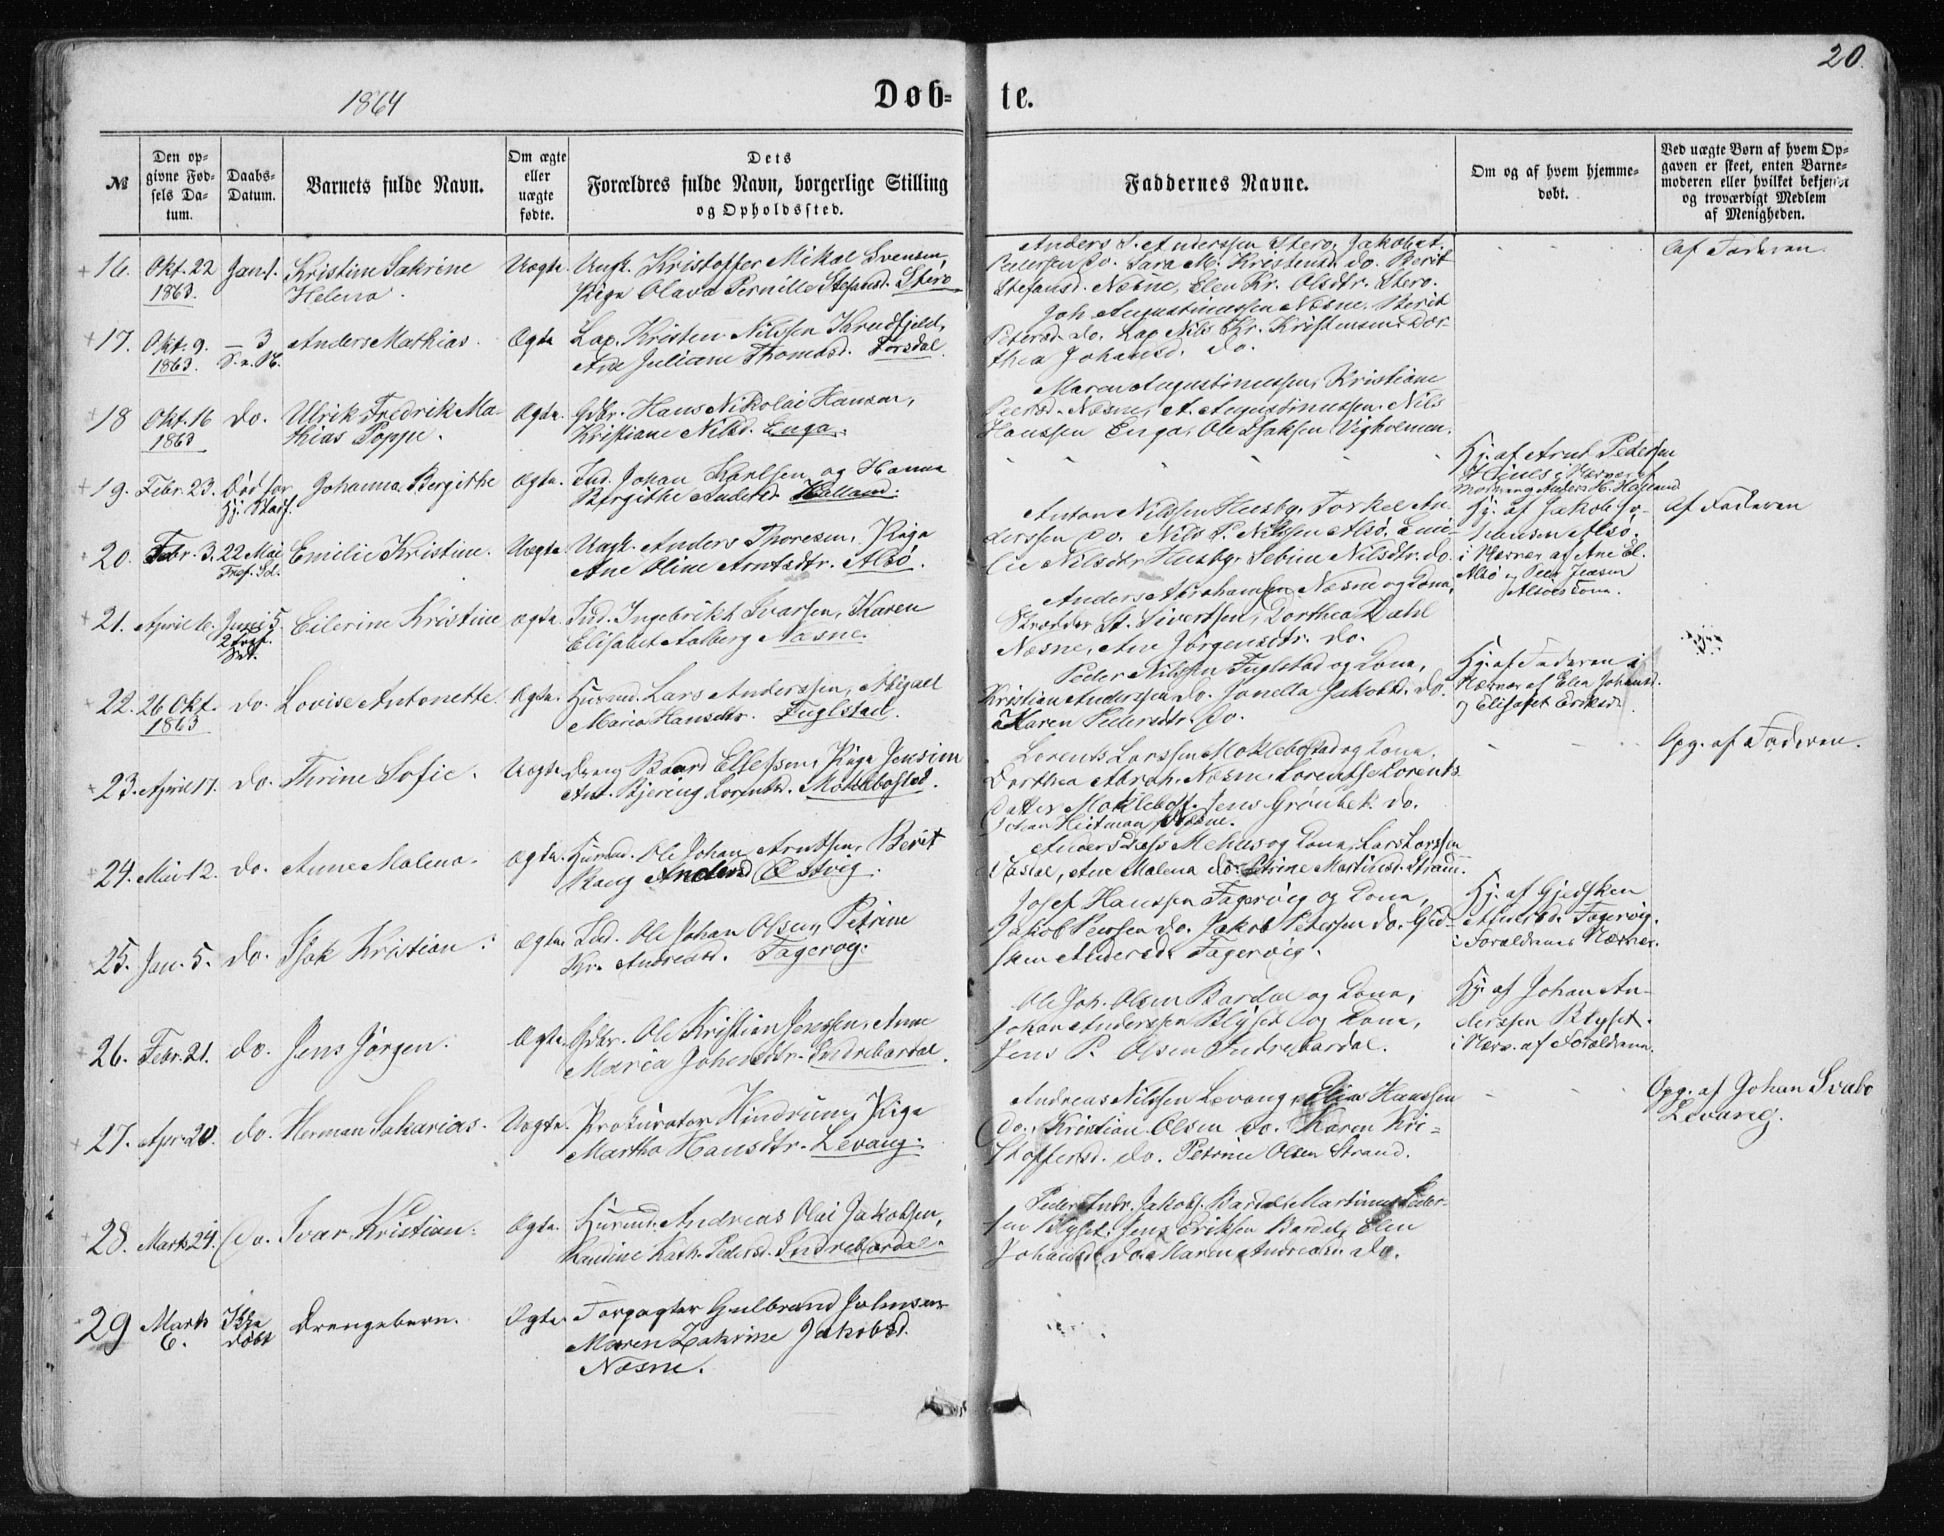 1864
Døb-
te.
20.
№
Den op-
givne Fød-
sels Da-
tum.
Daabs-
Datum.
Barnets fulde Navn.
Om ægte
eller
uægte
fødte.
Dets
Forældres fulde Navn, borgerlige Stilling
og Opholdssted.
Faddernes Navne.
Om og af hvem hjemme-
døbt.
Ved uægte Børn af hvem Op-
gaven er skeet, enten Barne-
moderen eller hvilket bekjendt
og troværdigt Medlem
af Menigheden.
16. Okt. 22 Jan 1. Kristine Sakrine Uægte. Ungk. Kristoffer Mikal Svensen,
1863. Helena. Pige Olava Pernille Stefansd. Stero
Anders S. Anderssen Stero, Jakob
Pedersen do. Sara M. Kristensd. do. Berit
Stefansd. Næsne, Elen Kr. Olsdtr. Stero.
Af Faderen.
17. Okt. 9. – 3 Anders Mathias. Ægte Lap. Kristen Nilssen
1863. S. e. N. Ane Juliane Thomasd. Forsdal.
Joh. Augustinussen Næsne. Berit
Petersd. do. Lap Nils Kr. Kristensen. Dor-
thea Johansd. do.
18 Okt. 16 do. Ulrik Fredrik Ma- Ægte. Gdbr. Hans Nikolai Hansen,
1863 thias Poppe. Kristiane Nilsd. Enga.
Maren Augustinussen, Kristiane
Peersd. Næsne, A. Augustinussen. Nils
Hanssen Enga, Ole Isaksen Vigholmen.
19. Febr. 23. Død før Johanna Bergithe Ægte. Ind. Johan Karlsen og Hanna
Bergithe Andersd. Halland.
Hj. af Arnt Pedersen
i Nærvær af
Anders H. Halland
20. Febr. 3. 22 Mai Emilie Kristine. Uægte Ungk. Anders Thoresen, Pige
Tref. Sd. Ane Oline Arntsdtr. Alsø.
Anton Nilssen Husby, Torkel An-
derssen do. Nils P. Nilssen Alsø. Emi-
lie Nilsdtr. Husby, Sebine Nilsdtr. do.
Hj. af Jakob Jo-
hansen Alsø.
i Nærvær af Ane El.
Alsø og Peder Jensen
Alsøs Kona.
Af Faderen
21. April 6. Juni 5. Eilerine Kristine Ægte. Ind. Ingebrikt Ivarsen, Karen
Elisabet Aalberg Næsne.
Anders Abrahamsen Næsne og Kona,
Skrædder St. Sivertsen, Dorthea Dahl
Næsne, Ane Jørgensdtr. do.
22. 26 Okt. do. Lovise Antonette. Ægte. Husmd. Lars Anderssen, Abigael
1863 Maria Hansdtr. Fuglstad.
Peder Nilssen Fuglstad og Kona,
Kristian Anderssen do. Janetta Jakobd. do.
Karen Pedersdtr. do.
Hj. af Faderen i
Nærvær af Elen Johansd.
og Elisabet Eriksd.
23. April 17. do. Thrine Sofie. Uægte. Dreng Baard Ellefsen, Pige Jensine
Ant. Bjering Lorentsd. Moklebostad.
Lorents Larssen Moklebostad og Kona.
Dorthea Abrah. Næsne. Lorentse Lorents-
datter Moklebost. Jens Grønbek do.
Johan Heitman Næsne.
Opg. af Faderen.
24. Mai 12. do. Anne Malena. Ægte. Husmd. Ole Johan Arntsen, Berit
Andersd. Æsvig.
Anders Mehus og Kona, Lars Larssen
Ane Malena do. Martinsd. Strøm.
25. Jan. 5. do. Isak Kristian. Ægte. Ind. Ole Johan Olsen, Petrine
Kr. Andreasd. Fagervig.
Josef Hanssen Fagervig og Kona,
Jakob Peersen do. Jakob Petersen do. Gjed-
sken Andersd. Fagervig.
Hj. af Gjedsken
Andersd. Fagervig.
i Forældrenes Nærvær.
26. Febr. 21. do. Jens Jørgen. Ægte. Gdbr. Ole Kristian Jensen, Anne
Maria Johansdtr. Indrebardal.
Ole Joh. Olsen Bardal og Kona,
Johan Anderssen Blyset og Kona,
Jens P. Olsen Indrebardal.
Hj. af Johan An-
derssen Blyset.
i Nærv. af Forældrene.
27. Apr. 20. do. Herman Sakarias. Uægte. Prokurator Hindrum, Pige
Martha Hansdtr. Levang.
Andreas Nilssen Levang, Elias Hanssen
do. Kristian Olsen do. Karen Kri-
stoffersd. do. Petrine Olsen Strand.
Opg. af Johan Svabo
Levang.
28. Marts 24. do. Ivar Kristian. Ægte. Husmd. Andreas Olai Jakobsen,
Kath. Pedersd. Indrebardal.
Peder Andr. Jakobs. Bardal, Martinus Peder-
sen Blyset. Jens Eriksen Bardal, Elen
Johansd. do. Maren Andreasd. do.
29 Marts Ikke Drengebarn. Ægte. Forpagter Gulbrand Johnsen
6. døbt Maren Kathrine Jakobsd.
Næsne.